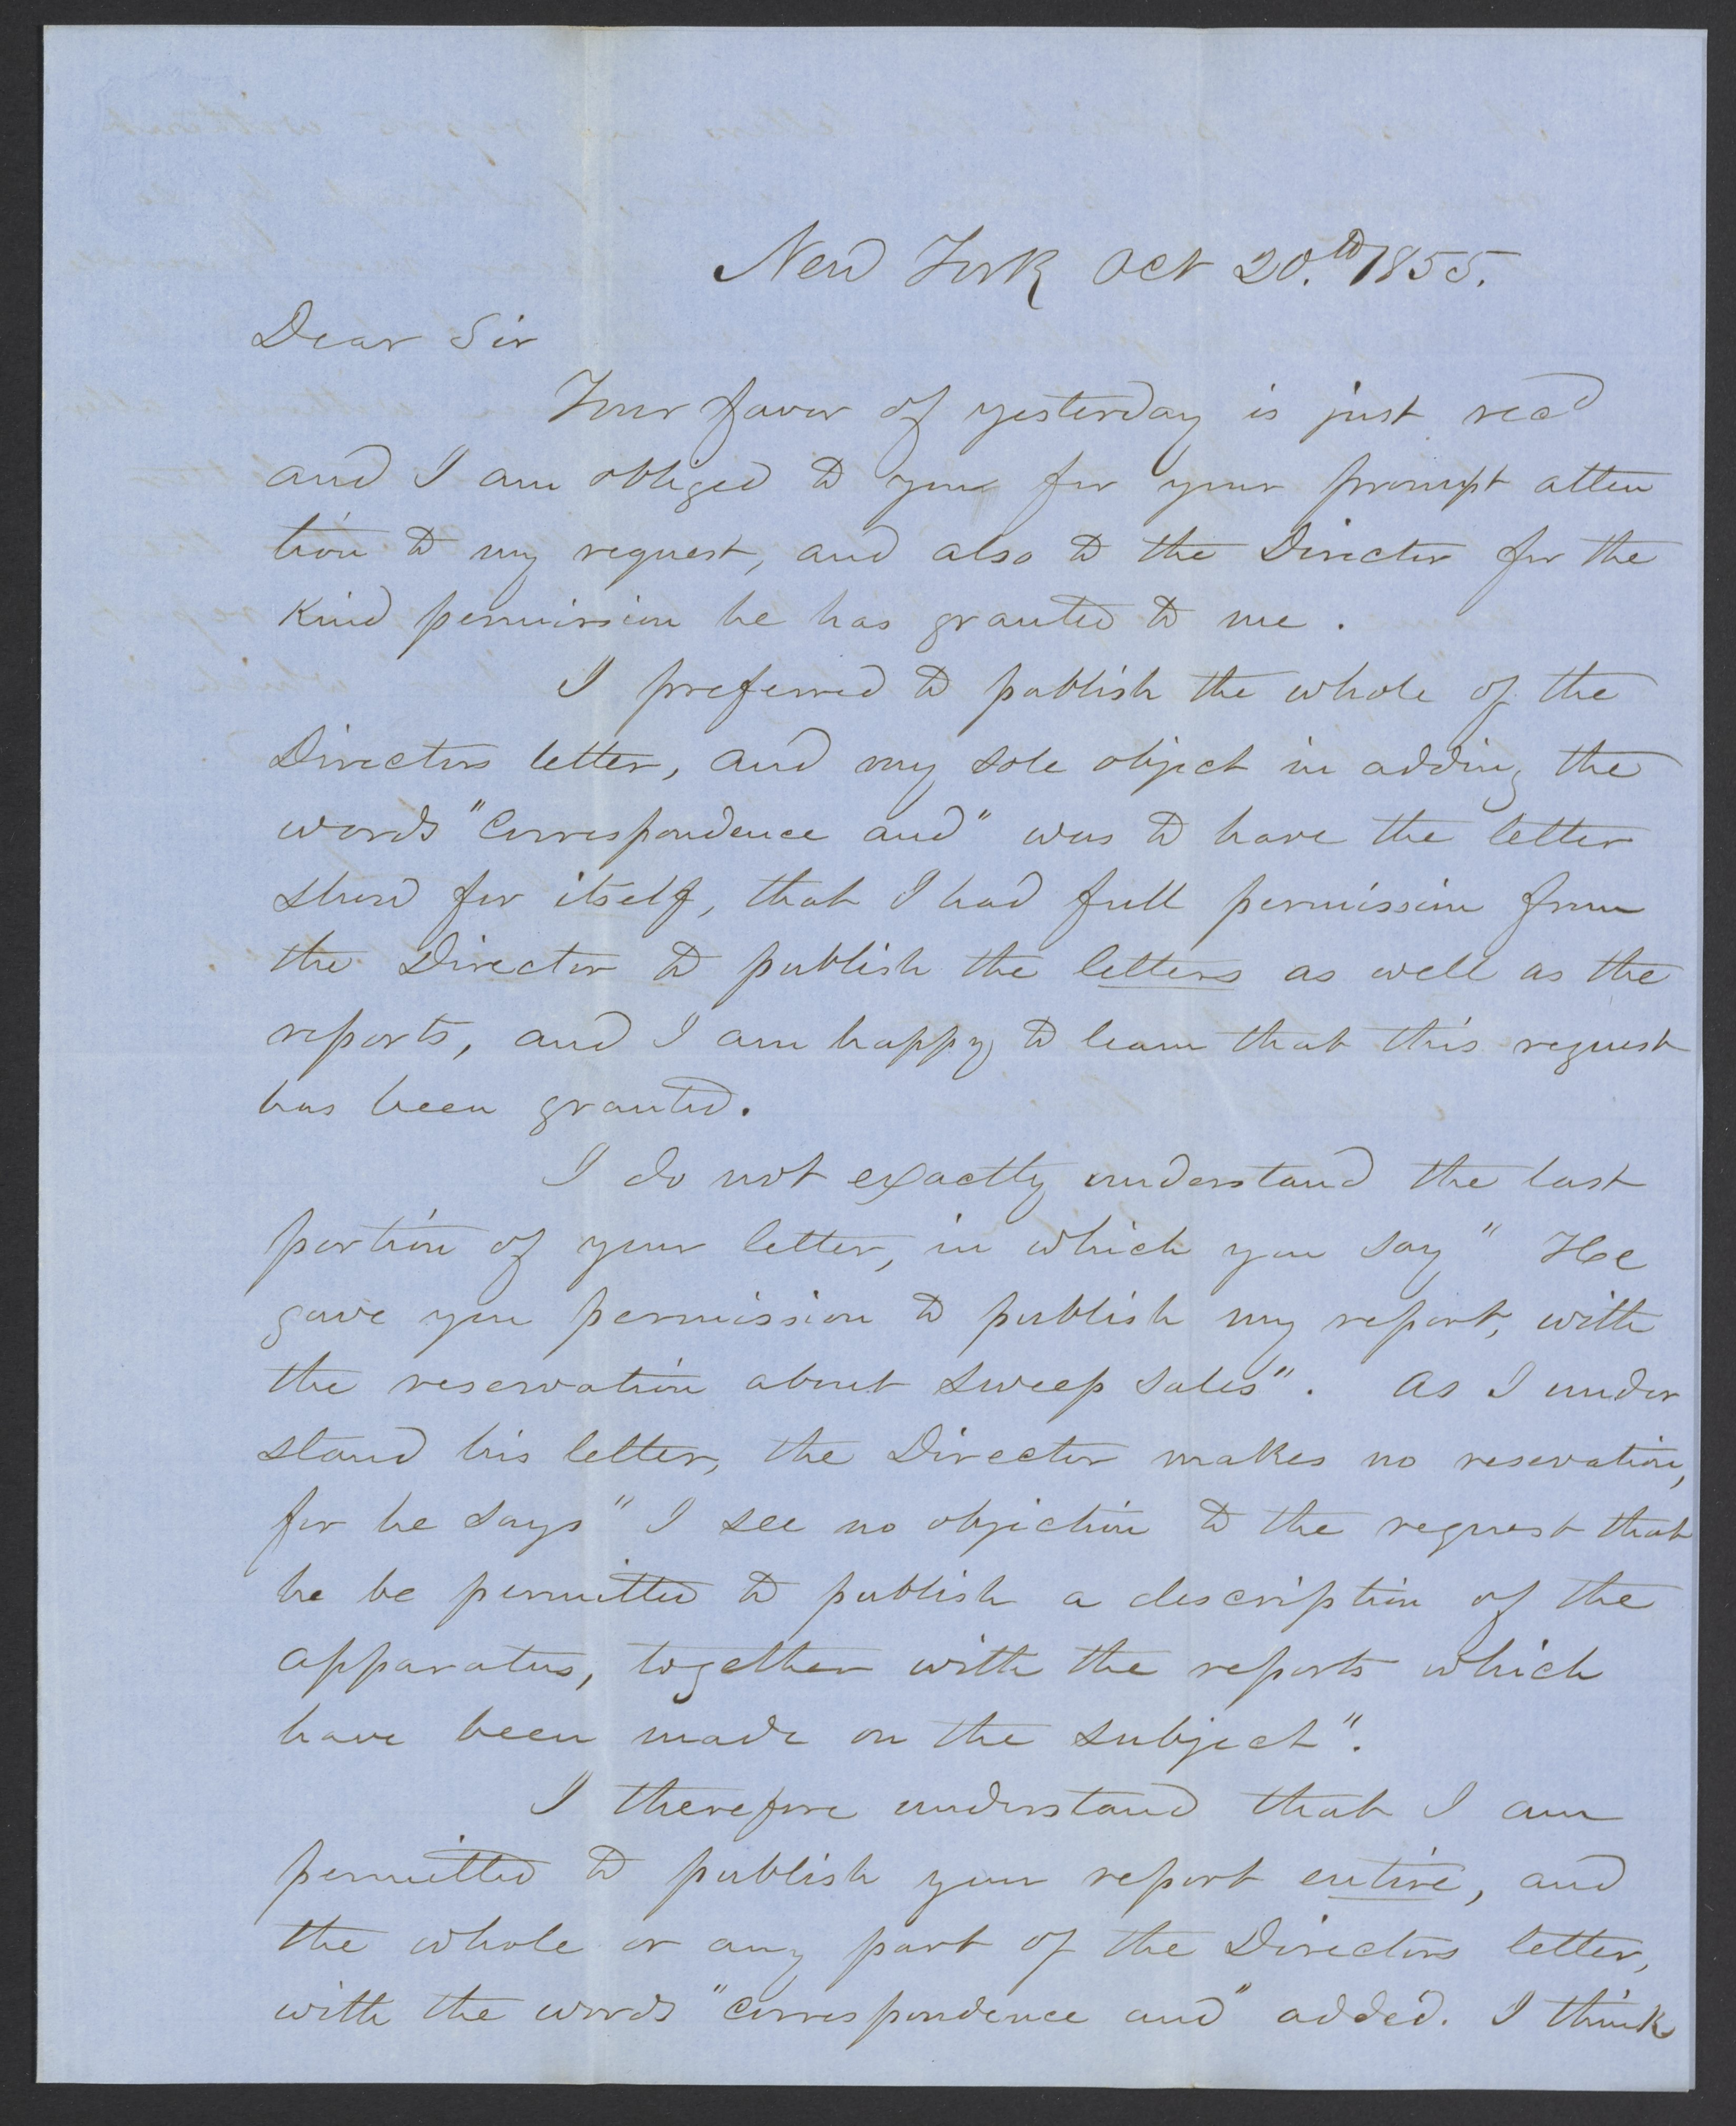 New York Oct 20.th 1855.
Dear Sir
Your favor of yesterday is just recd
and I am obliged to you for your prompt atten
tion to my request, and also to the Director for the
kind permission he has granted to me.
I preferred to publish the whole of the
Directors letter, and my sole object in adding the
words "Correspondence and" was to have the letter
show for itself, that I had full permission from
the Director to publish the letters as well as the
reports, and I am happy to learn that this request
has been granted.
I do not exactly understand the last
portion of your letter, in which you say "He
gave you permission to publish my report, with
the reservation about sweep sales". As I under
stand his letter, the Director makes no reservation,
for he says "I see no objection to the request that
he be permitted to publish a description of the
apparatus, together with the reports which
have been made on the subject".
I therefore understand that I am
permitted to publish your report entire, and
the whole or any part of the Directors letter,
with the words "correspondence and" added. I think